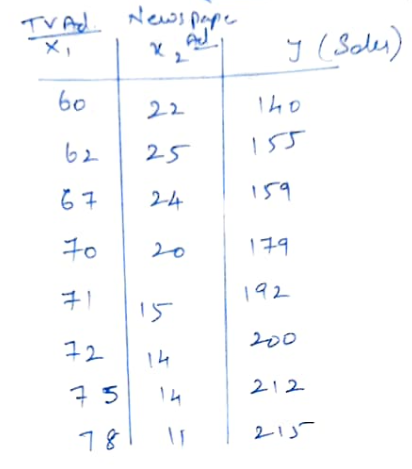 TV Ad Newspape Ad
X₁ x₂ y (Sales)
60 22 140
62 25 155
67 24 159
70 20 179
71 15 192
72 14 200
75 14 212
78 11 215